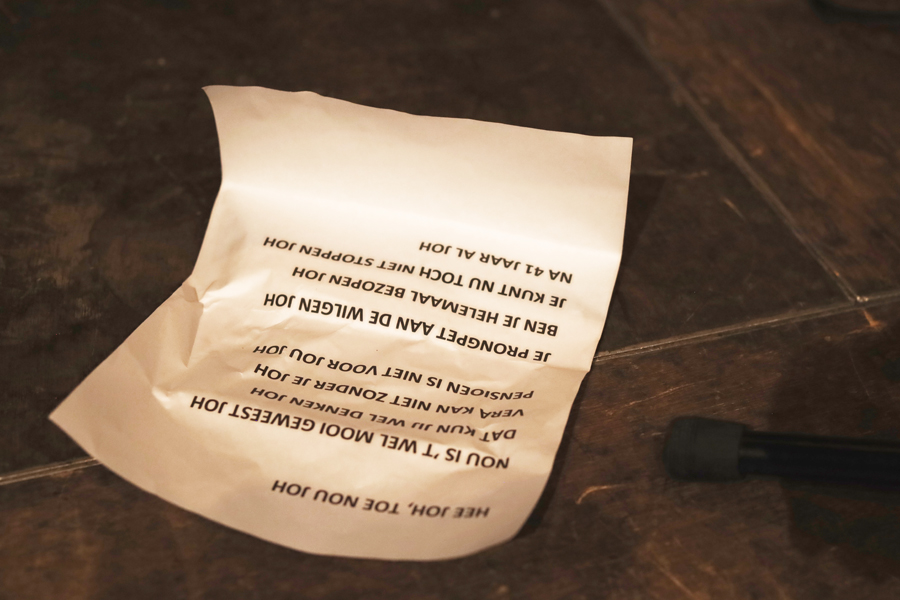 HEE JOH, TOE NOU JOH
NOU IS 'T WEL MOOI GEWEEST JOH
DAT KUN JIJ WEL DENKEN JOH
VERA KAN NIET ZONDER JE JOH
PENSIOEN IS NIET VOOR JOU JOH
JE PRONGPET AAN DE WILGEN JOH
BEN JE HELEMAAL BEZOPEN JOH
JE KUNT NU TOCH NIET STOPPEN JOH
NA 41 JAAR AL JOH